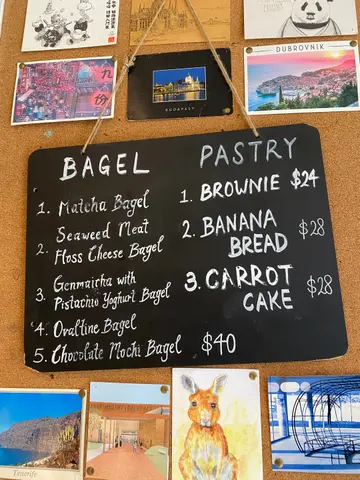 BUDAPEST
DUBROVNIK
BAGEL
1. Matcha Bagel
2. Seaweed Meat
Floss Cheese Bagel
3. Genmaicha with
Pistachio Yoghurt Bagel
4. Ovaltine Bagel
5. Chocolate Mochi Bagel $40
PASTRY
1. BROWNIE $24
2. BANANA
BREAD $28
3. CARROT
CAKE $28
Tenerife